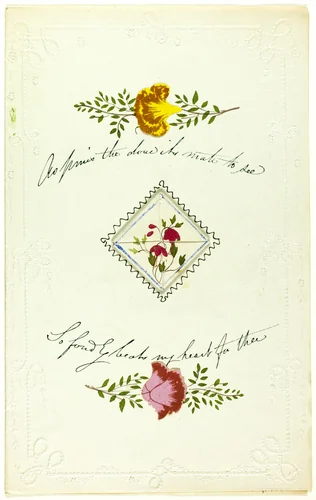 As pines the dove its mate to see
So fondly beats my heart for thee